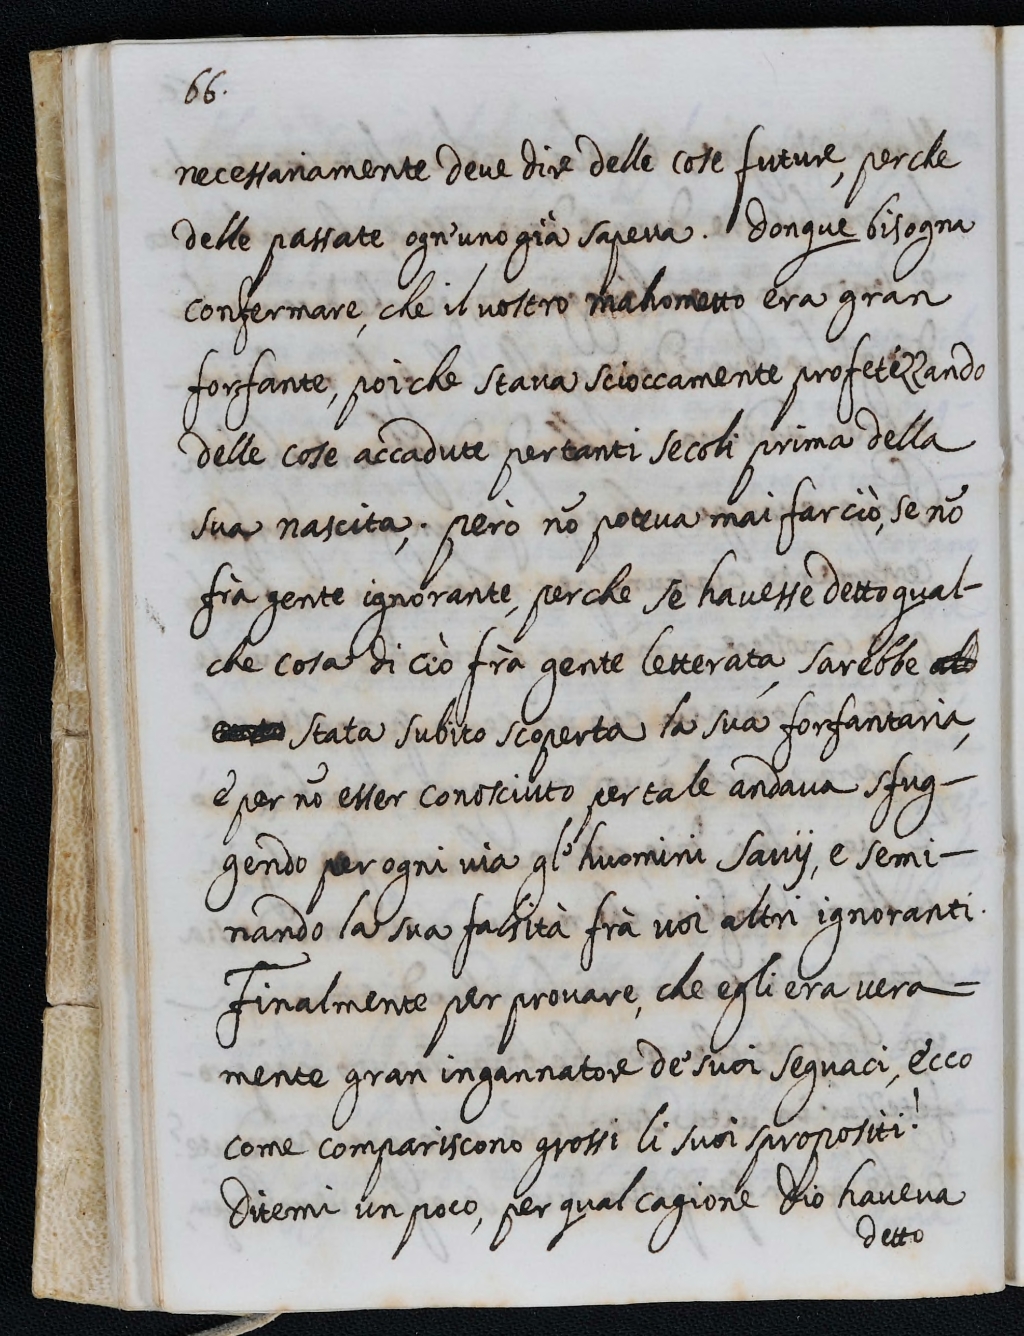 66.
necessariamente deve dire delle cose future, perche
delle passate ogn'uno già sapeva. Donque bisogna
confermare, che il vostro mahometto era gran
forfante, poi che stava scioccamente profetézzando
delle cose accadute per tanti secoli prima della
sua nascita; però nõ poteva mai far ciò, se nõ
frà gente ignorante, perche se havesse detto qual-
che cosa di ciò frà gente letterata, sarebbe
stata subito scoperta la sua forfantaria,
e per nõ esser conosciuto per tale andava sfug-
gendo per ogni via gl'huomini savij, e semi-
nando la sua falsità frà voi altri ignoranti.
Finalmente per provare, che egli era vera-
mente gran ingannatore de' suoi seguaci, ecco
come compariscono grossi li suoi spropositi!
Ditemi un poco, per qual cagione Dio haveva
detto